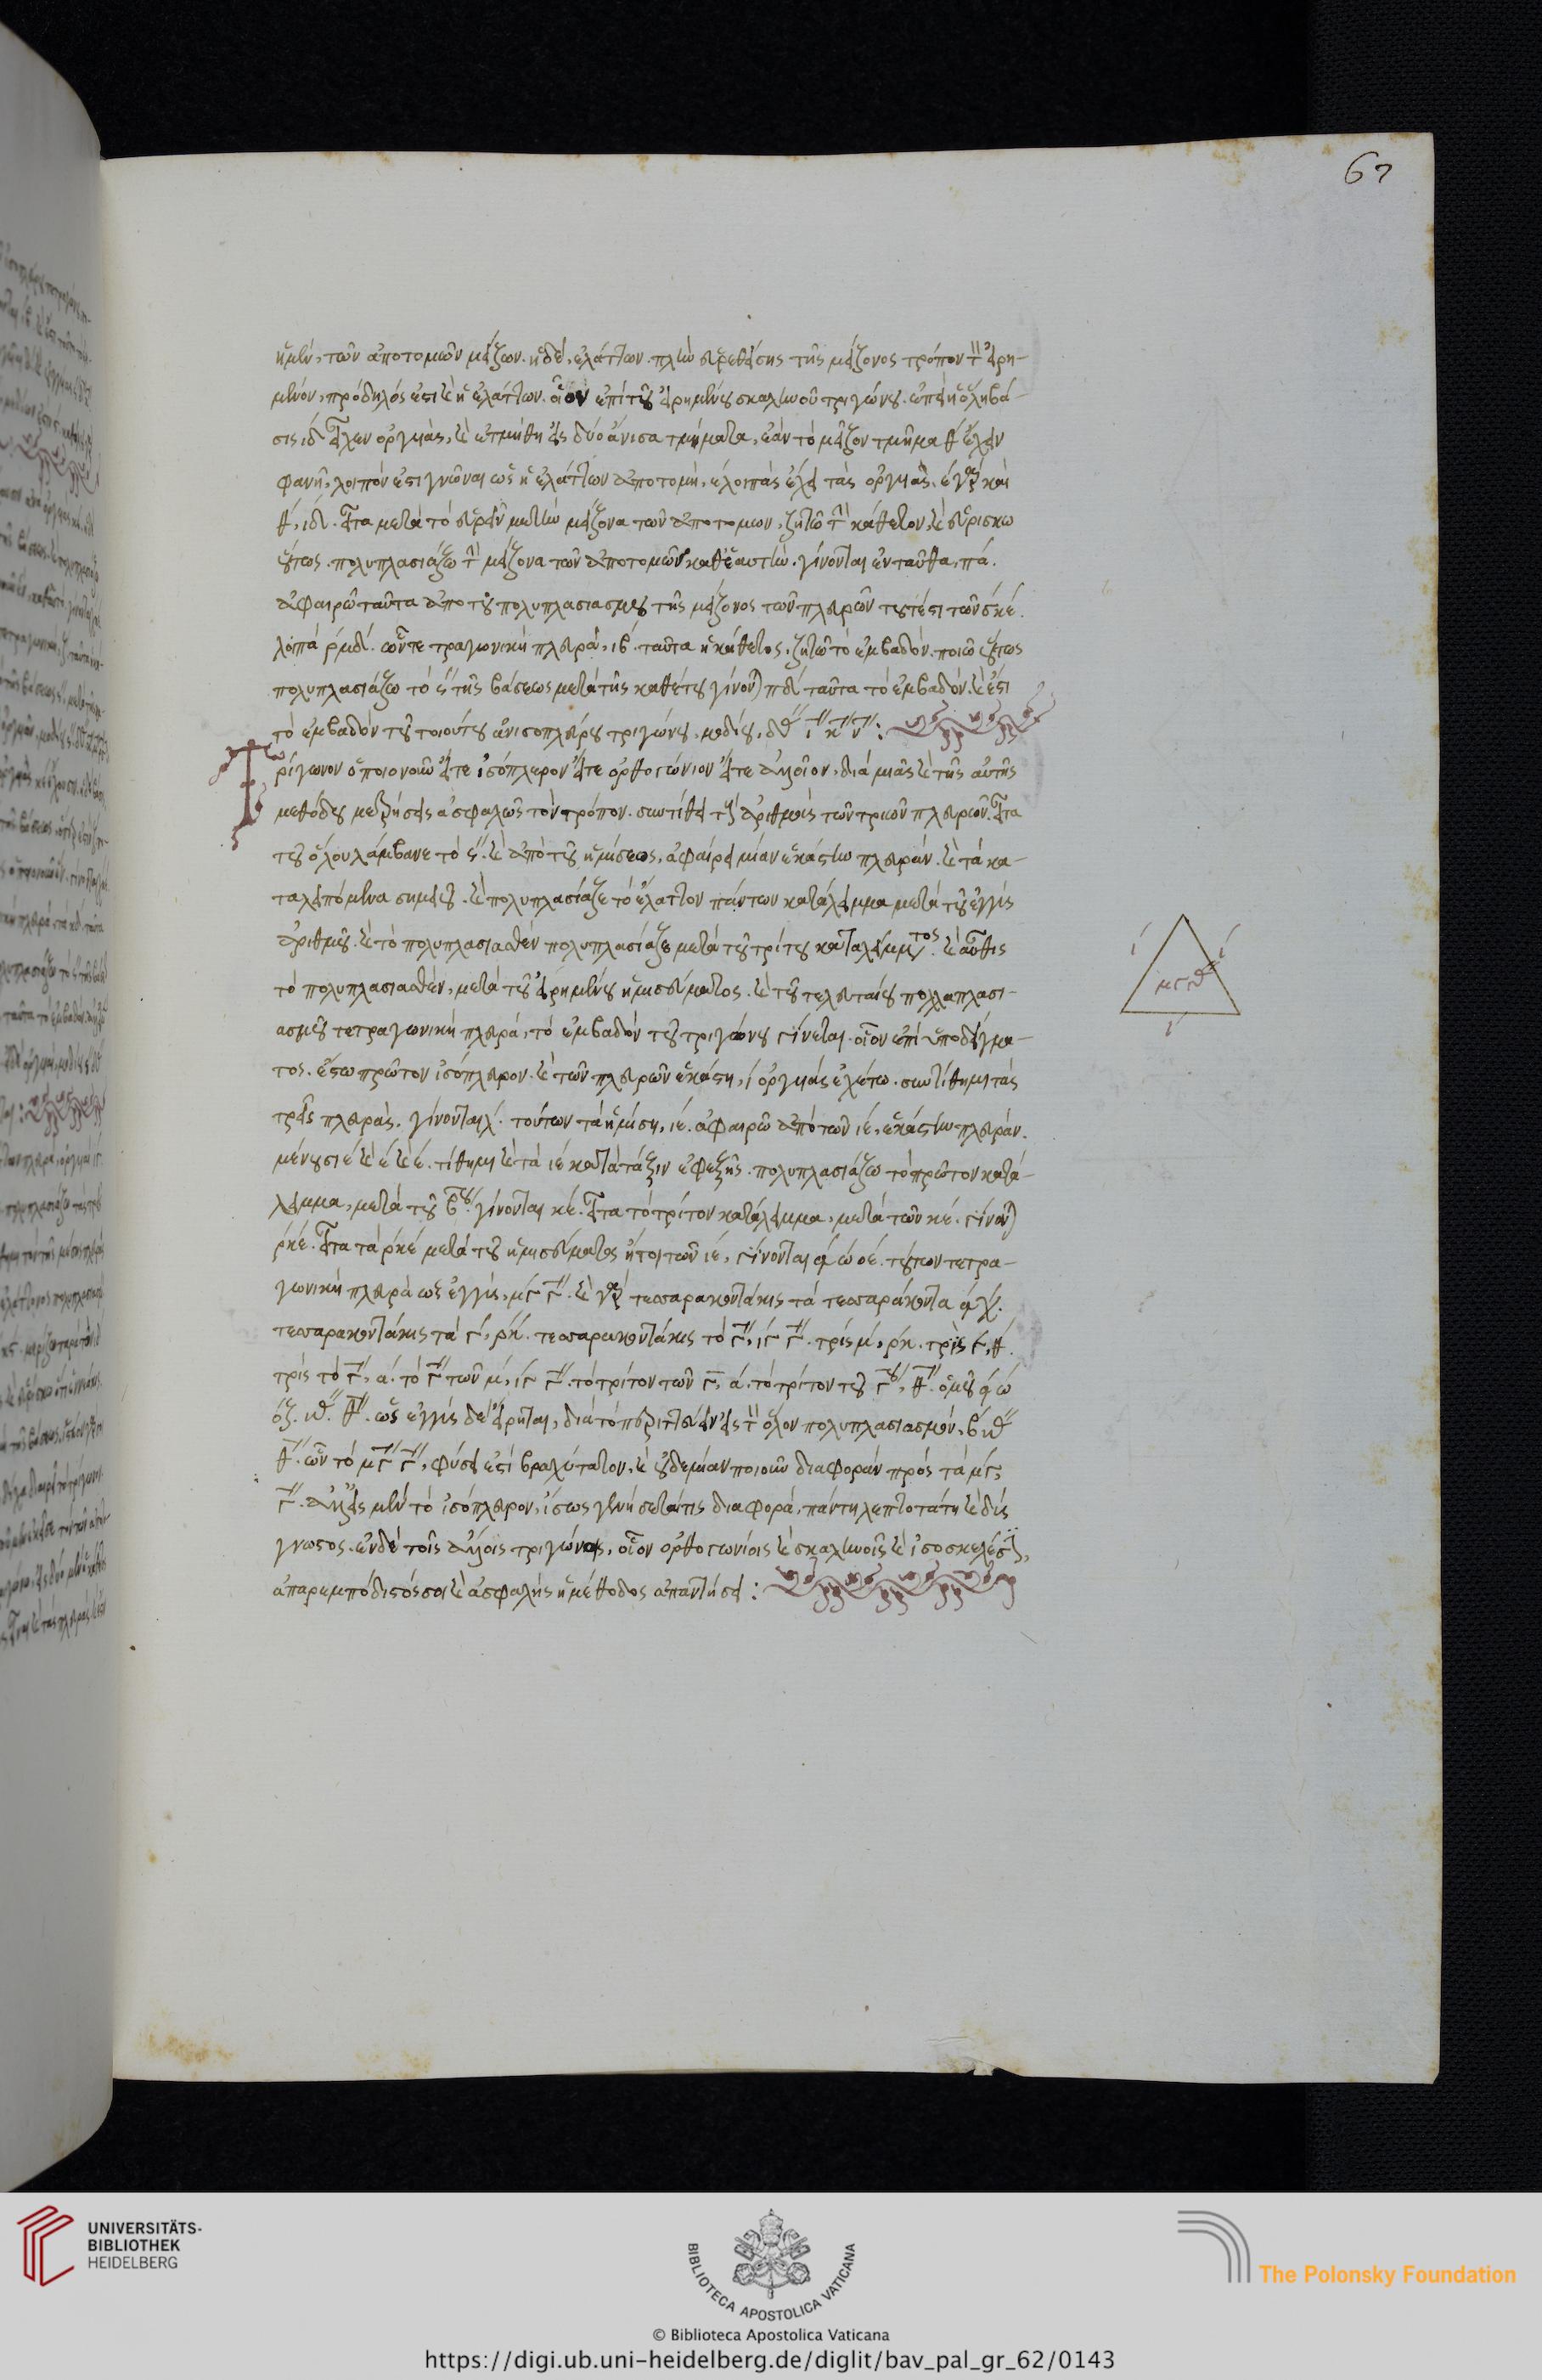 67
ἡ μὲν, τῶν ἀποτομῶν μείζων. ἡ δέ, ἐλάττων. πλὴν εὑρεθείσης τῆς μείζονος τρόπον τὸν εἰρη-
μένον, πρόδηλός ἐστι καὶ ἡ ἐλάττων. οἷον ἐπὶ τοῦ εἰρημένου σκαληνοῦ τριγώνου. ἐπεὶ ἡ ὅλη βά-
σις ιδ εἶχεν ὀργυιὰς, καὶ ἐτμήθη εἰς δύο ἄνισα τμήματα, ἐὰν τὸ μεῖζον τμῆμα θ ἔχειν
φανῇ, λοιπόν ἐστι γνῶναι ὡς ἡ ἐλάττων ἀποτομὴ, ε λοιπὰς ἔχει τὰς ὀργυιάς. ε γὰρ καὶ
θ, ιδ. εἶτα μετὰ τὸ εὑρεῖν με τὴν μείζονα τῶν ἀποτομῶν, ζητῶ τὴν κάθετον, καὶ εὑρίσκω
οὕτως. πολυπλασιάζω τὴν μείζονα τῶν ἀποτομῶν καθ' ἑαυτήν. γίνονται ἐνταῦθα, πα.
ἀφαιρῶ ταῦτα ἀπὸ τοῦ πολυπλασιασμοῦ τῆς μείζονος τῶν πλευρῶν τουτέστι τῶν σκε.
λοιπὰ ρμδ. ὧν τετραγωνικὴ πλευρά, ιβ. ταῦτα ἡ κάθετος. ζητῶ τὸ ἐμβαδόν. ποιῶ οὕτως
πολυπλασιάζω τὸ ς΄΄ τῆς βάσεως μετὰ τῆς καθέτου γίνονται πδ ταῦτα τὸ ἐμβαδόν. καὶ ἔστι
τὸ ἐμβαδὸν τοῦ τοιούτου ἀνισοπλεύρου τριγώνου, μοδίου,
Τρίγωνον ὁποιονοῦν εἴτε ἰσόπλευρον εἴτε ὀρθογώνιον εἴτε ἀλλοῖον, διὰ μιᾶς καὶ τῆς αὐτῆς
μεθόδου μετρήσεις ἀσφαλῶς τὸν τρόπον. συντίθει τοὺς ἀριθμοὺς τῶν τριῶν πλευρῶν. εἶτα
τοῦ ὅλου λάμβανε τὸ ς΄΄. καὶ ἀπὸ τοῦ ἡμίσεος, ἀφαίρει μίαν ἑκάστην πλευράν. καὶ τὰ κα-
ταλειπόμενα σημειοῦ. καὶ πολυπλασίαζε τὸ ἔλαττον πάντων κατάλειμμα μετὰ τοῦ ἐγγὺς
ἀριθμοῦ. καὶ τὸ πολυπλασιασθὲν πολυπλασίαζε μετὰ τοῦ τρίτου καταλείμματος. καὶ αὖθις
τὸ πολυπλασιασθέν, μετὰ τοῦ εἰρημένου ἡμισεύματος. καὶ τοῦ τελευταίου πολλαπλασι-
ασμοῦ τετραγωνικὴ πλευρά, τὸ ἐμβαδὸν τοῦ τριγώνου γίνεται. οἷον ἐπὶ ὑποδείγμα-
τος. ἔστω πρῶτον ἰσόπλευρον. καὶ τῶν πλευρῶν ἑκάστη, ι ὀργυιὰς ἐχέτω. συντίθημι τὰς
τρεῖς πλευράς. γίνονται λ. τούτων τὰ ἡμίση, ιε. ἀφαιρῶ ἀπὸ τῶν ιε, ἑκάστην πλευράν.
μένουσι ε καὶ ε καὶ ε. τίθημι καὶ τὰ ιε κατὰ τάξιν ἐφεξῆς. πολυπλασιάζω τὸ πρῶτον κατά-
λειμμα, μετὰ τοῦ βου. γίνονται κε. εἶτα τὸ τρίτον κατάλειμμα, μετὰ τῶν κε. γίνονται
ρκε. εἶτα τὰ ρκε μετὰ τοῦ ἡμισεύματος ἤτοι τῶν ιε, γίνονται ͵αωοε. τούτων τετρα-
γωνικὴ πλευρὰ ὡς ἔγγιστα, μγ γ΄΄. καὶ γὰρ τεσσαρακοντάκις τὰ τεσσαράκοντα ͵αχ.
τεσσαρακοντάκις τὰ γ, ρκ. τεσσαρακοντάκις τὸ γ΄΄, ιγ γ΄΄. τρὶς μ, ρκ. τρὶς γ, θ.
τρὶς τὸ γ΄΄, α. τὸ γ΄΄ τῶν μ, ιγ γ΄΄. τὸ τρίτον τῶν γ, α. τὸ τρίτον τοῦ γου, θ΄΄. ὁμοῦ ͵αω
ὡς ἔγγιστα δὲ εἴρηται, διὰ τὸ περιττεύειν εἰς τὸν ὅλον πολυπλασιασμόν,
φύσει ἐστὶ βραχύτατον, καὶ οὐδεμίαν ποιοῦν διαφορὰν πρὸς τὰ μγ
γ΄΄. ἀλλ' εἰς μὲν τὸ ἰσόπλευρον, ἴσως γενήσεταί τις διαφορά, πάντη λεπτοτάτη καὶ δύσ
γνωστος. ἐν δὲ τοῖς ἄλλοις τριγώνοις, οἷον ὀρθογωνίοις καὶ σκαληνοῖς καὶ ἰσοσκελέσιν,
ἀπαρεμπόδιστός σοι καὶ ἀσφαλὴς ἡ μέθοδος ἀπαντήσει :
ι
ι
ι
UNIVERSITÄTS-
BIBLIOTHEK
HEIDELBERG
BIBLIOTECA APOSTOLICA VATICANA
The Polonsky Foundation
© Biblioteca Apostolica Vaticana
https://digi.ub.uni-heidelberg.de/diglit/bav_pal_gr_62/0143